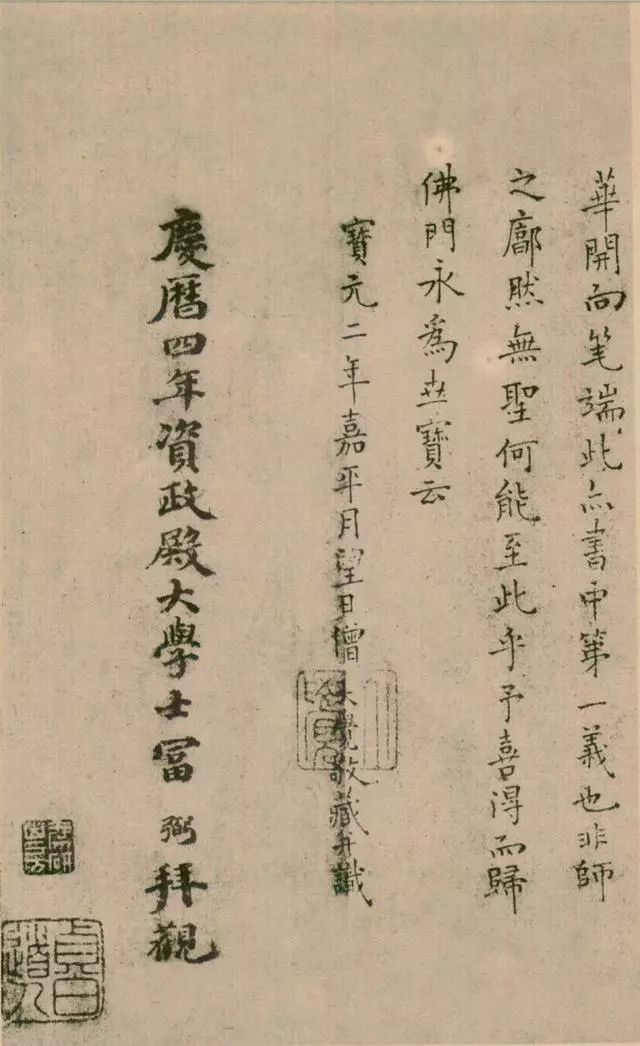 華開向笔端此亦書中第一義也非師
之廓然無聖何能至此乎予喜得而歸
佛門永為世寶云
寶元二年嘉平月望日僧大覺敬藏并識
慶曆四年資政殿大學士冨弼拜觀